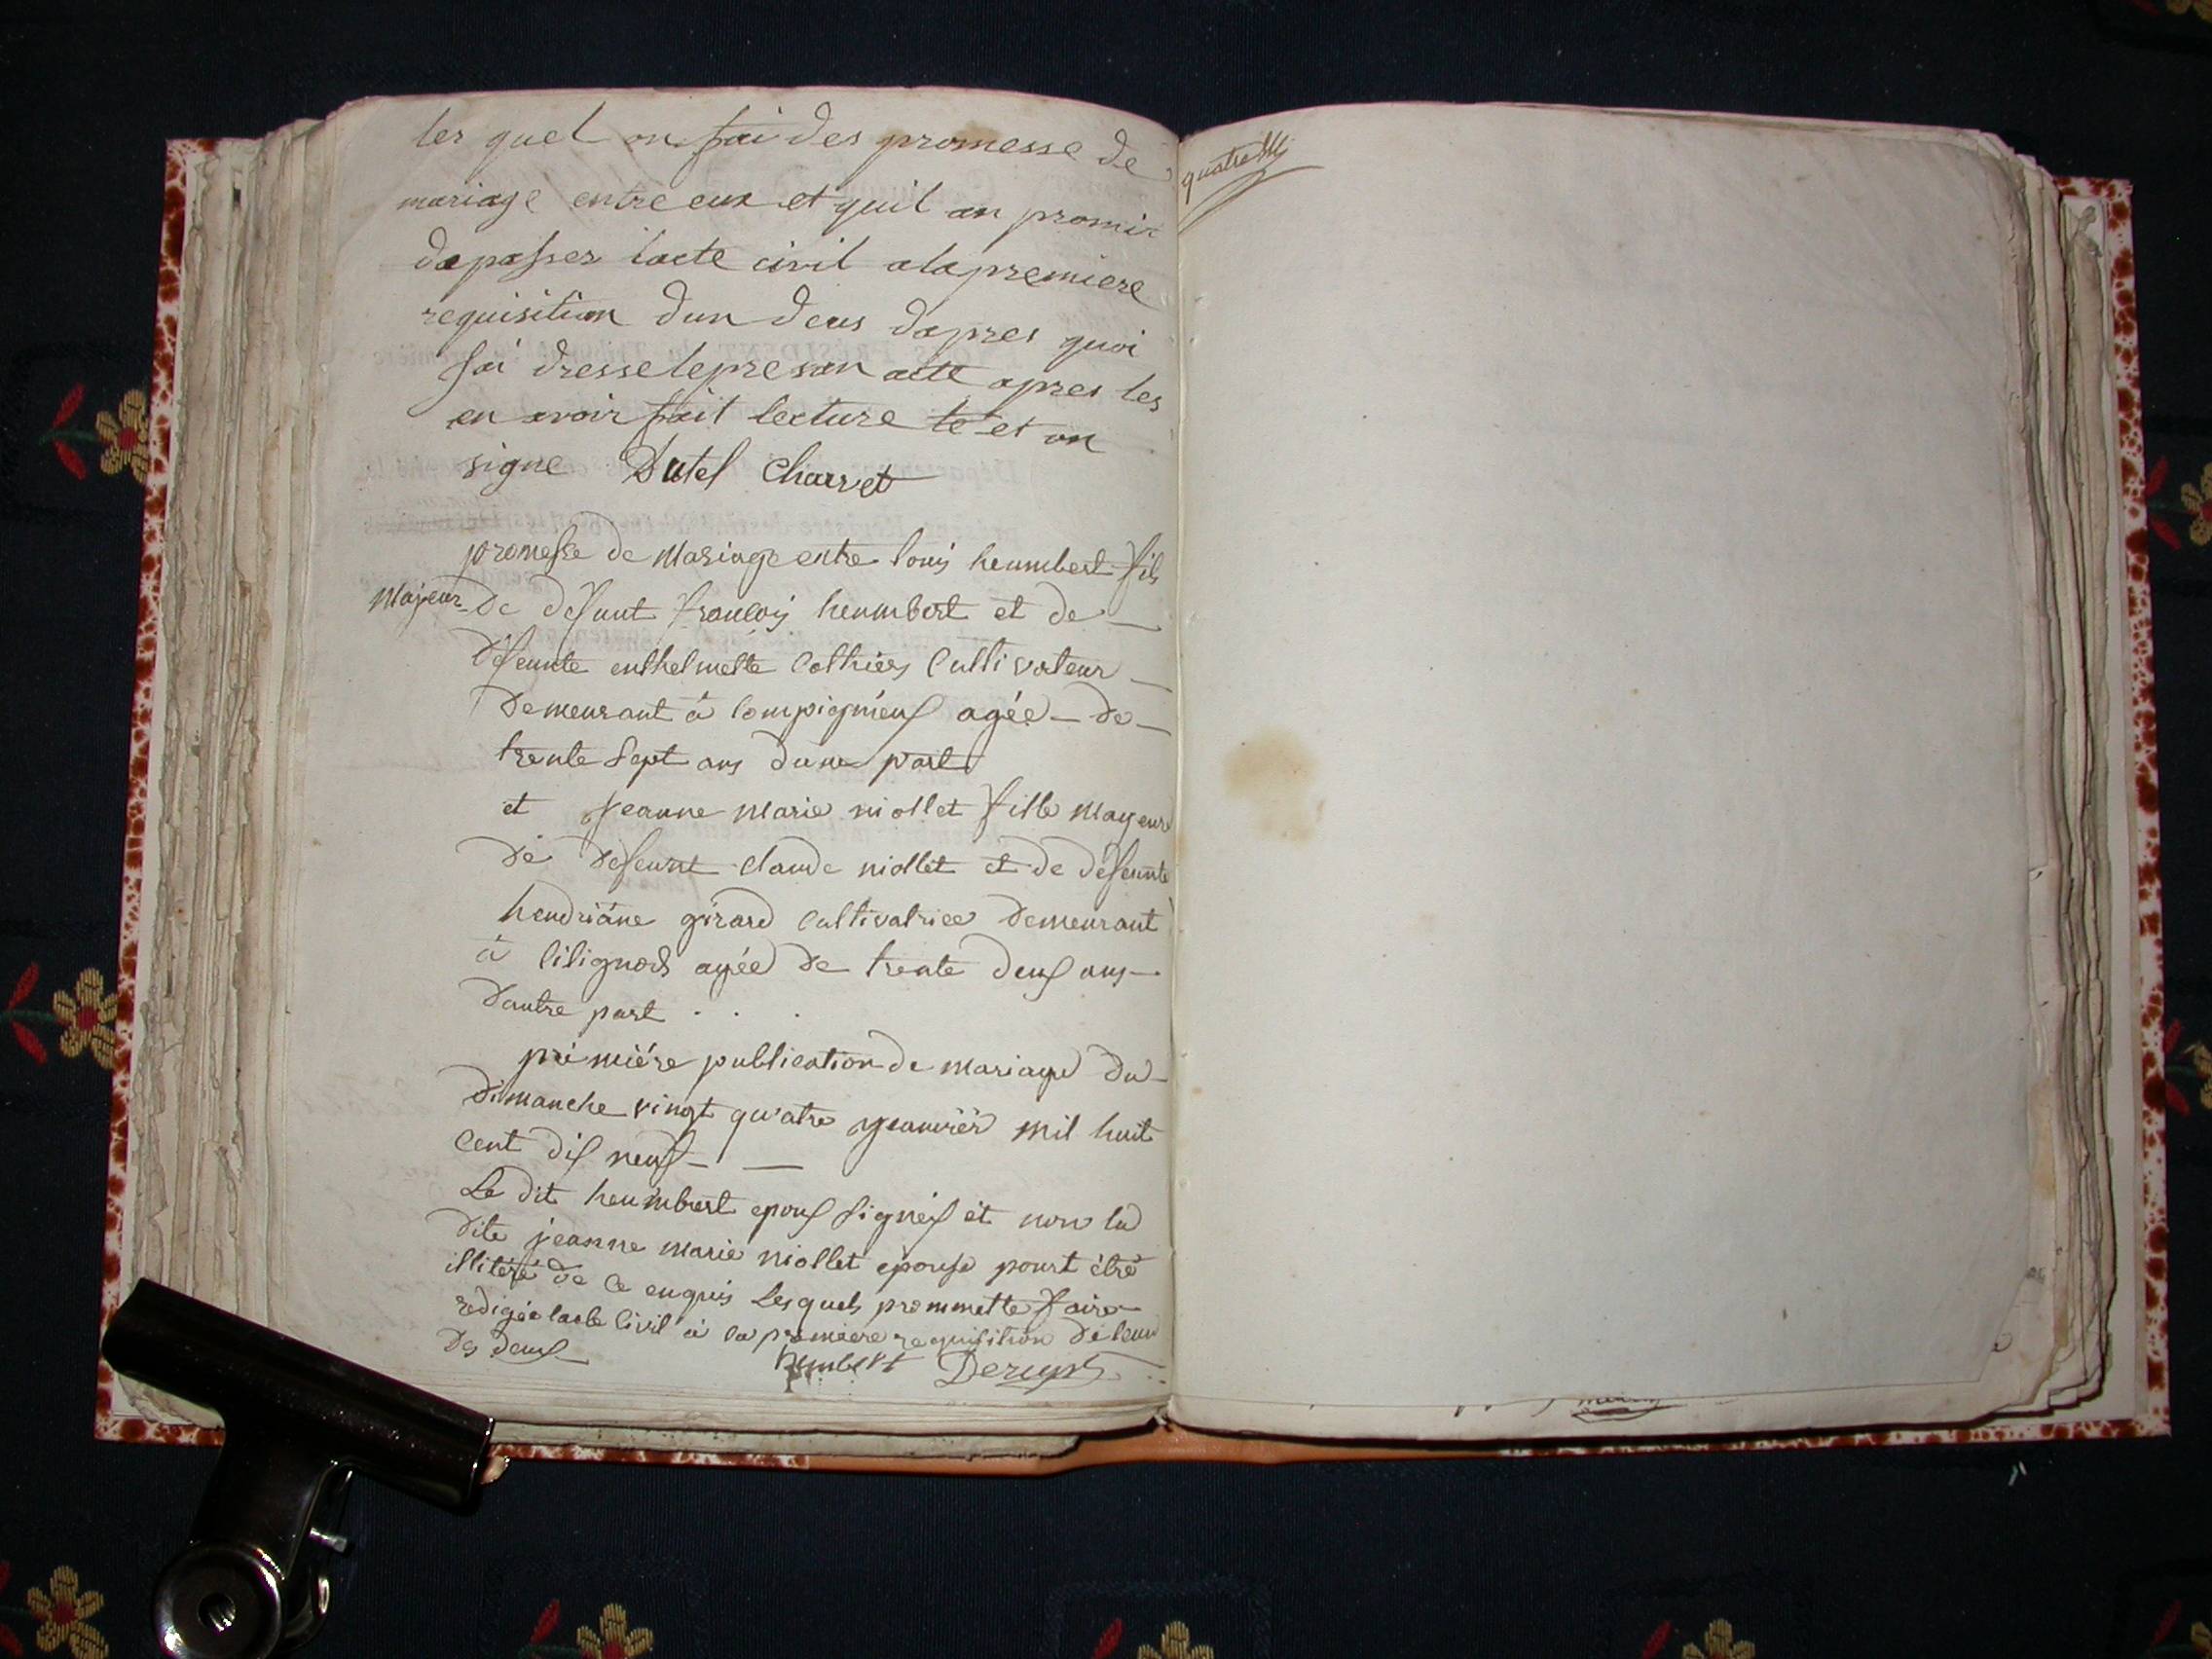 les quel on fai des promesse de
mariage entre eux et quil on promis
de passer lacte civil a la premiere
requisition dun deus dapres quoi
Jai dresse le presan acte apres les
en avoir fait lecture et on
signe Dutel Charvet
promesse de Mariage entre louis heumbert fils
Majeur de defunt françois heumbert et de
defeunte enthelmette Cothier Cultivateur
demeurant à Compignieux agée de
trente Sept ans dune part
et Jeanne Marie niollet fille Mayeure
de defeunt claude niollet et de defeunte
hendriâne girard Cultivatrice demeurant
à lilignods agée de trente deux ans
dautre part . . .
première publication de mariage du
dimanche vingt quatre yeanvier mil huit
Cent dix neuf
Le dit heumbert epoux signéx et non la
dite jeanne marie niollet epouse pourt être
illitéré de ce enquis Lesquels prommette faire
redigée lacte Civil à la premiere requisition de leur
des deux humbert
quatre